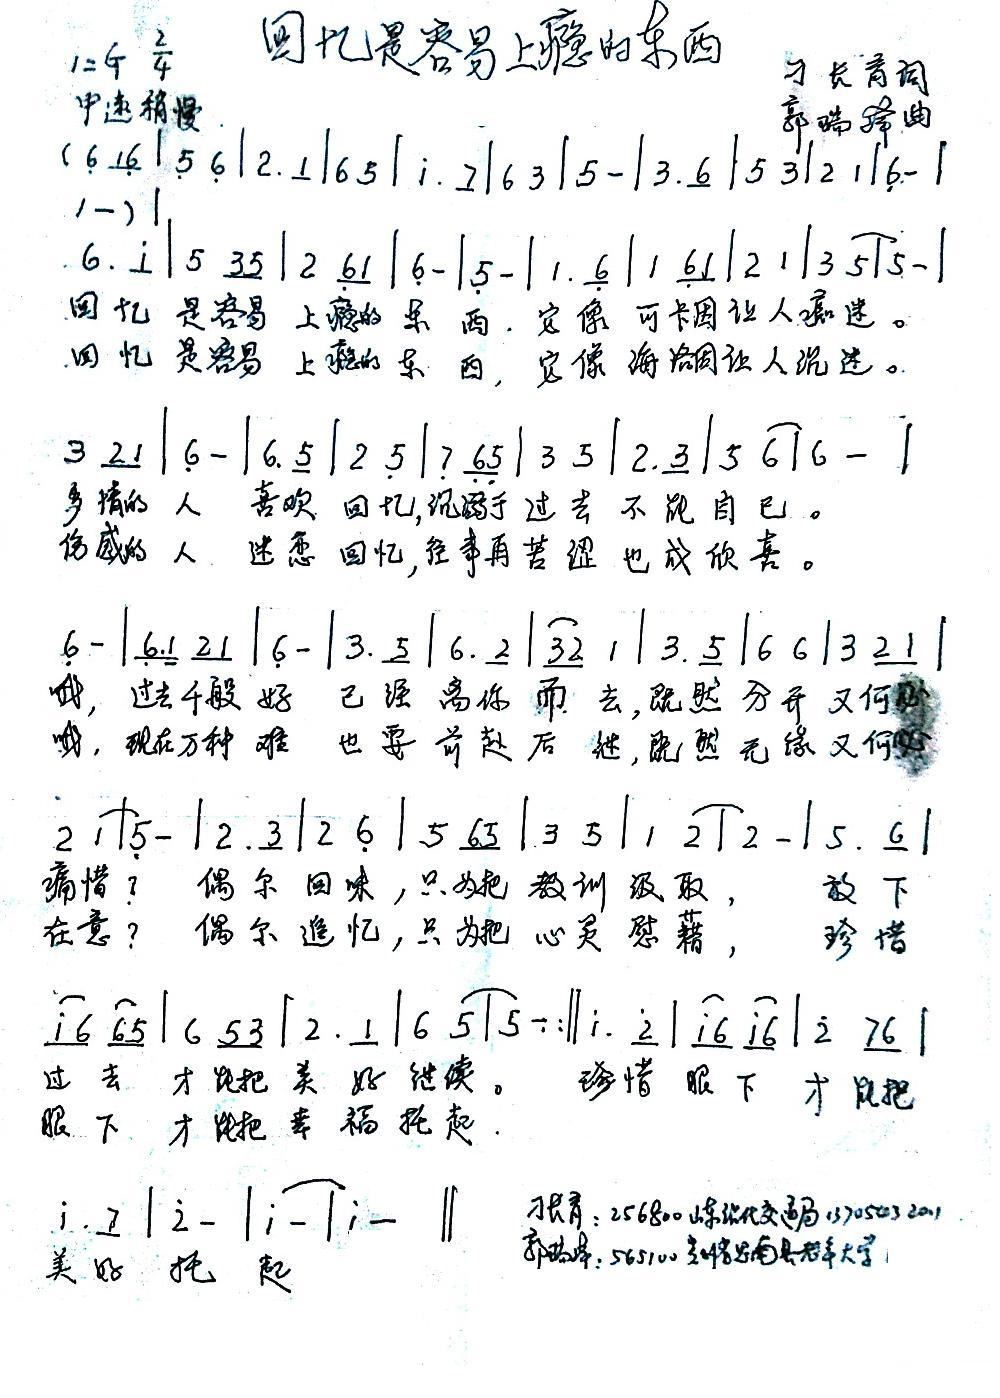 回忆是容易上瘾的东西
1=G 2/4
刁长育词
中速稍慢
郭瑞泽曲
(6 16 | 5 6 | 2. 1 | 6 5 | i. 7 | 6 3 | 5 - | 3. 6 | 5 3 | 2 1 | 6 - |
1 - ) |
6. i | 5 35 | 2 61 | 6 - | 5 - | 1. 6 | 1 61 | 2 1 | 3 5 | 5 - |
回忆 是容易 上瘾的 东 西. 它像 可卡因让人痴迷。
回忆 是容易 上瘾的 东 西, 它像 海洛因让人沉迷。
3 21 | 6 - | 6. 5 | 2 5 | 7 65 | 3 5 | 2. 3 | 5 6 | 6 - |
多情的 人 喜欢 回忆,沉溺于过去 不能自已。
伤感的 人 迷恋 回忆,往事再苦涩 也成欣喜。
6 - | 6.1 21 | 6 - | 3. 5 | 6. 2 | 32 1 | 3. 5 | 6 6 | 3 21 |
哦, 过去千般 好 已经 离你 而 去,既然 分开 又何必
哦. 现在万种 难 也要 前赴 后 继,既然 无缘 又何必
2 1 | 5 - | 2. 3 | 2 6 | 5 65 | 3 5 | 1 2 | 2 - | 5. 6 |
痛惜? 偶尔 回味,只为把 教训 吸取, 放下
在意? 偶尔 追忆,只为把 心灵 慰藉, 珍惜
i6 65 | 6 53 | 2. 1 | 6 5 | 5 - :‖ i. 2 | i6 i6 | 2 76 |
过 去 才能把 美 好 继续。 珍惜 眼 下 才 能把
眼 下 才能把 幸 福 托起.
i. 7 | 2 - | i - | i - ‖
美 好 托 起
刁长育:256800山东沾化交通局
郭瑞泽:565100